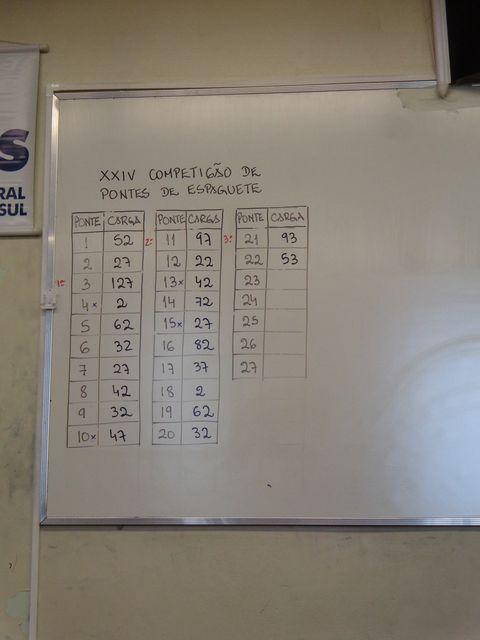 S
RAL
SUL
XXIV COMPETIÇÃO DE
PONTES DE ESPAGUETE
PONTE CARGA
1 52
2 27
1º 3 127
4x 2
5 62
6 32
7 27
8 42
9 32
10x 47
PONTE CARGA
2º 11 97
12 22
13x 42
14 72
15x 27
16 82
17 37
18 2
19 62
20 32
PONTE CARGA
3º 21 93
22 53
23
24
25
26
27